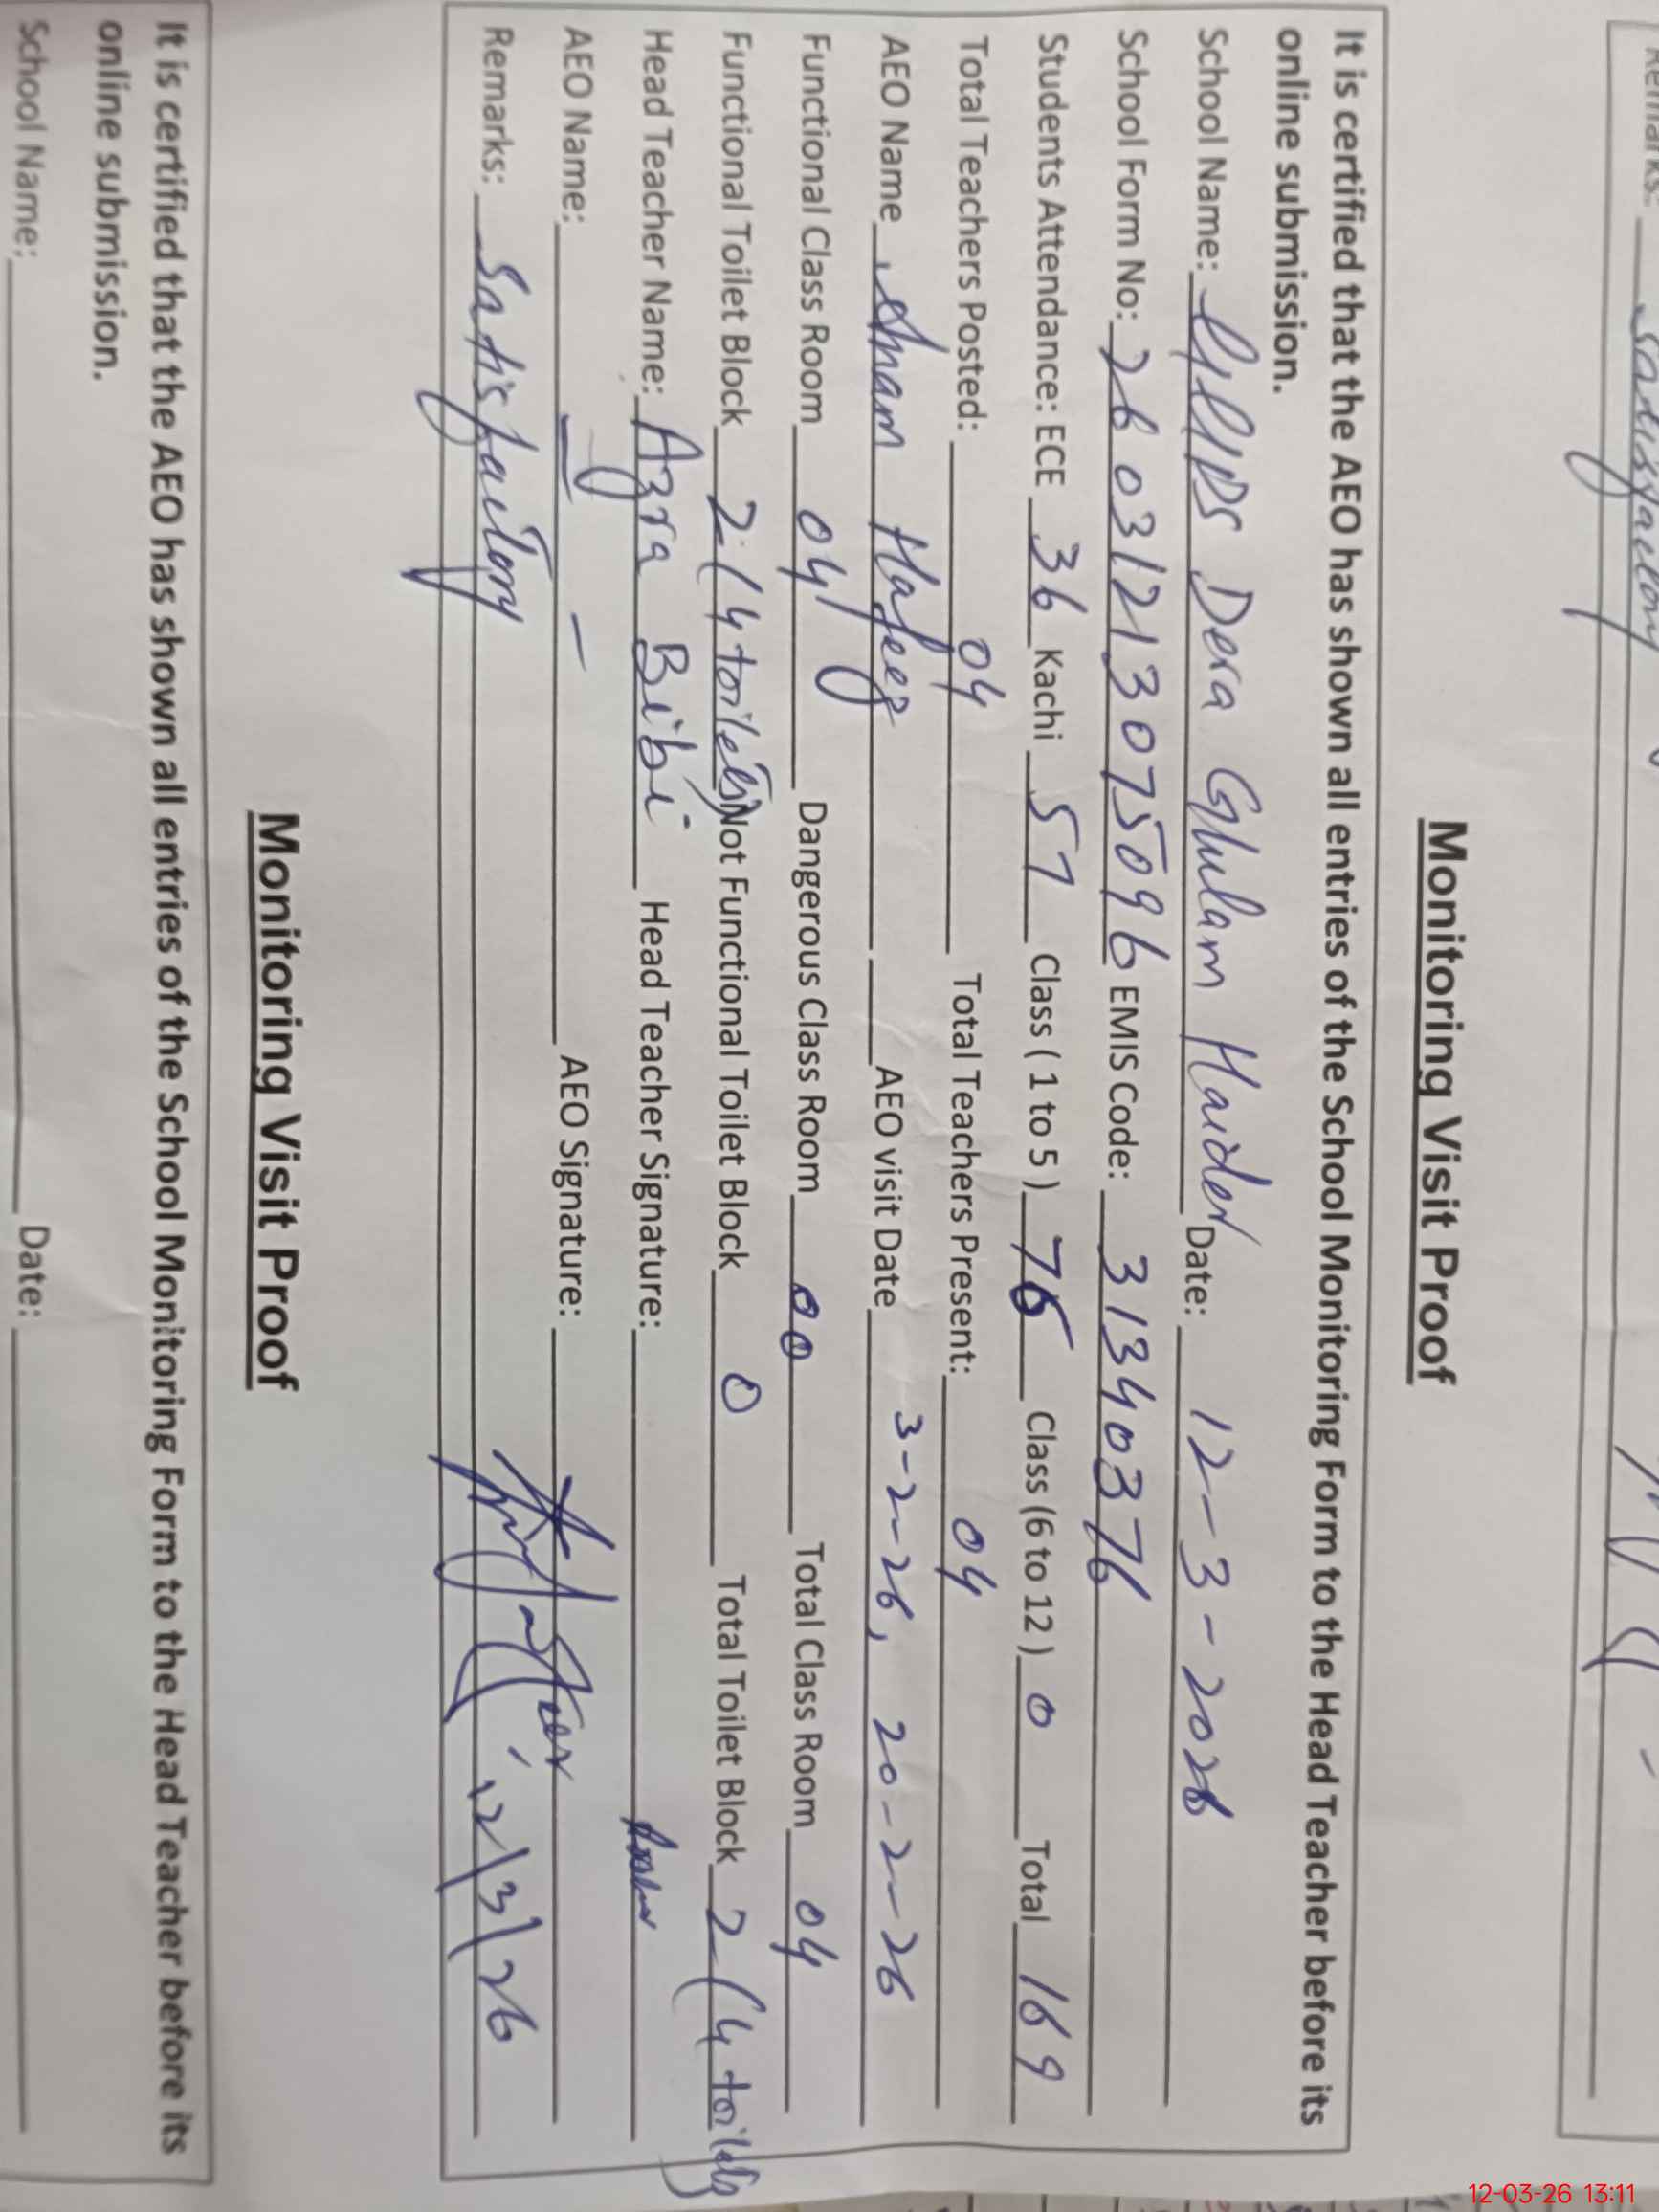 Remarks: Satisfactory
Monitoring Visit Proof
It is certified that the AEO has shown all entries of the School Monitoring Form to the Head Teacher before its
online submission.
School Name: Dera Ghulam Haider Date: 12-3-2026
School Form No: 26031213075096 EMIS Code: 31340376
Students Attendance: ECE 36 Kachi 57 Class ( 1 to 5 ) 76 Class (6 to 12 ) 0 Total 169
Total Teachers Posted: 04 Total Teachers Present: 04
AEO Name Anam Hafeez AEO visit Date 3-2-26, 20-2-26
Functional Class Room 04 Dangerous Class Room 00 Total Class Room 04
Functional Toilet Block 2 (4 toilets) Not Functional Toilet Block 0 Total Toilet Block 2 (4 toilets)
Head Teacher Name: Azra Bibi Head Teacher Signature:
AEO Name: AEO Signature:
Remarks: Satisfactory 12/3/26
Monitoring Visit Proof
It is certified that the AEO has shown all entries of the School Monitoring Form to the Head Teacher before its
online submission.
School Name: Date:
12-03-26 13:11